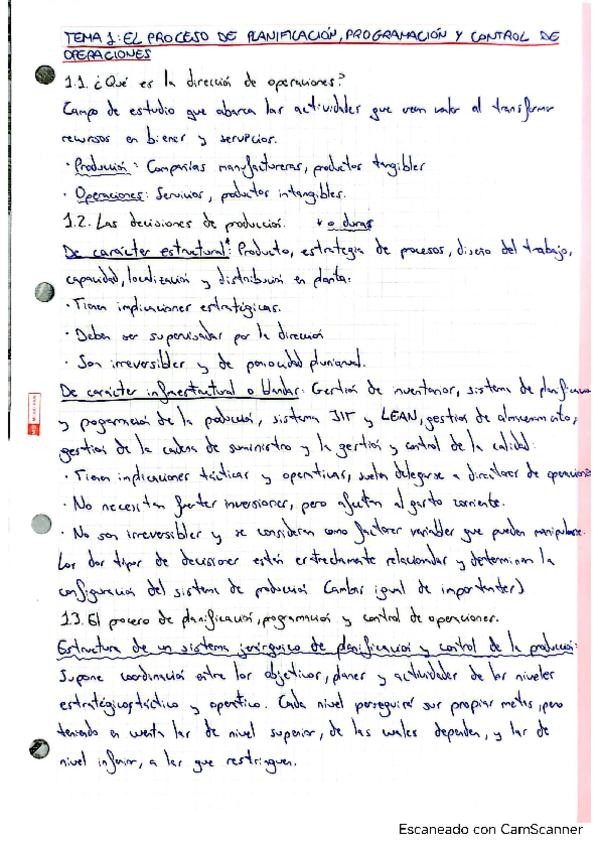 TEMA 1: EL PROCESO DE PLANIFICACIÓN, PROGRAMACIÓN Y CONTROL DE
OPERACIONES
1.1. ¿Qué es la dirección de operaciones?
Campo de estudio que abarca las actividades que crean valor al transformar
recursos en bienes y servicios.
· Producción: Compañías manufactureras, productos tangibles
· Operaciones: Servicios, productos intangibles.
1.2. Las decisiones de producción. * o duras
De carácter estructural*: Producto, estrategia de procesos, diseño del trabajo,
capacidad, localización y distribución en planta:
· Tienen implicaciones estratégicas.
· Deben ser supervisadas por la dirección
· Son irreversibles y de periodicidad plurianual.
De carácter infraestructural o blandas: Gestión de inventarios, sistema de planificación
y programación de la producción, sistema JIT y LEAN, gestión de almacenamiento,
gestión de la cadena de suministro y la gestión y control de la calidad:
· Tienen implicaciones tácticas y operativas, suelen delegarse a directores de operaciones
· No necesitan fuertes inversiones, pero afectan al gasto corriente.
· No son irreversibles y se consideran como factores variables que pueden manipularse.
Los dos tipos de decisiones están estrechamente relacionadas y determinan la
configuración del sistema de producción (ambas igual de importantes)
1.3. El proceso de planificación, programación y control de operaciones.
Estructura de un sistema jerárquico de planificación y control de la producción:
Supone coordinación entre los objetivos, planes y actividades de los niveles
estratégico, táctico y operativo. Cada nivel perseguirá sus propias metas, pero
teniendo en cuenta las de nivel superior, de las cuales dependen, y las de
nivel inferior, a las que restringen.
MIQUELRIUS
Escaneado con CamScanner